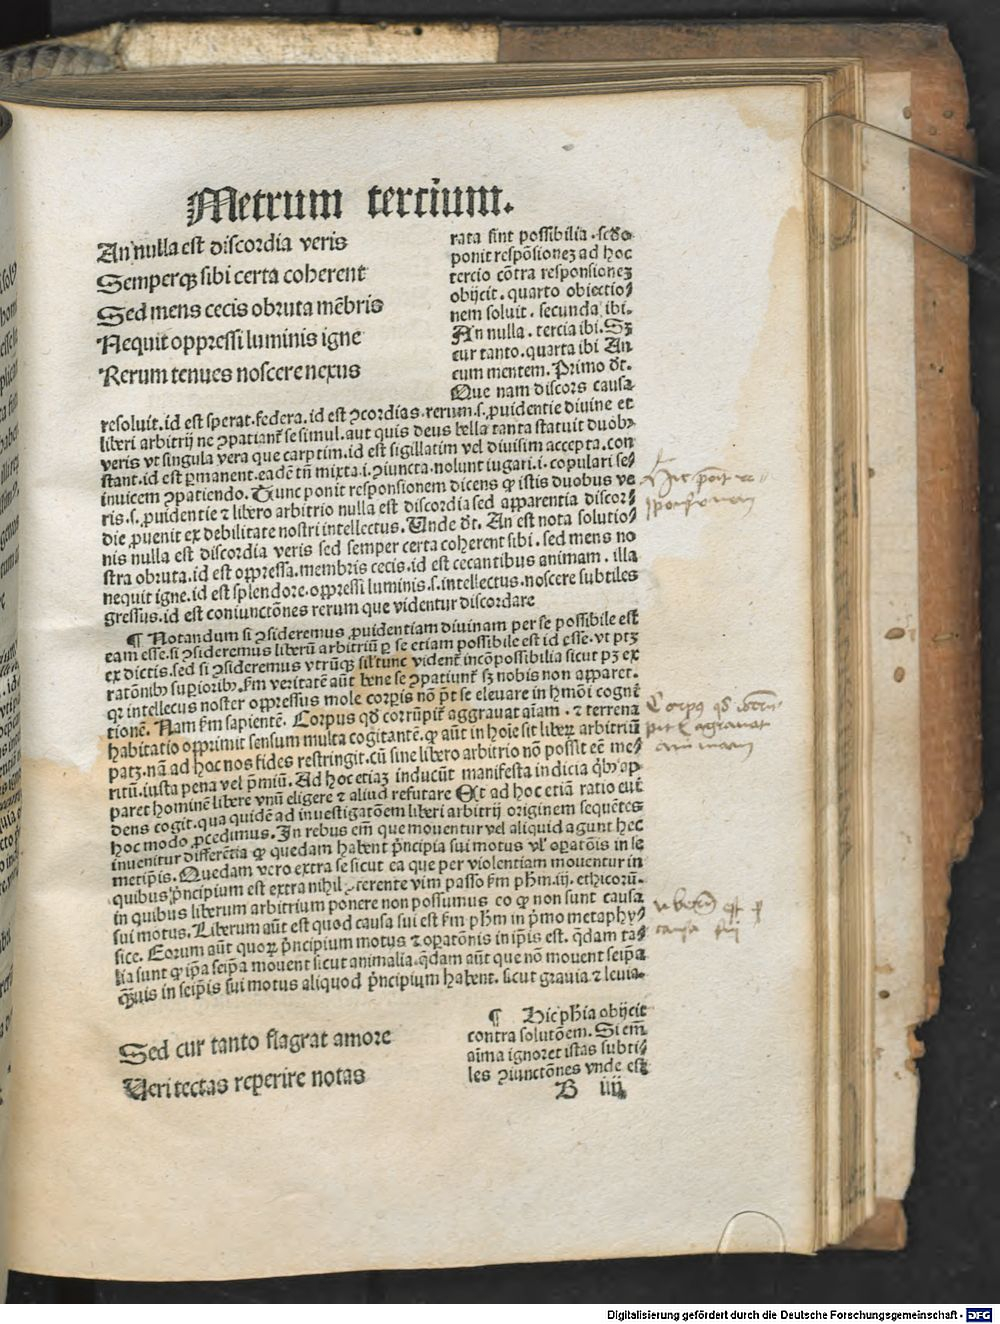 Metrum tercium.
An nulla est discordia veris
Semperqꝫ sibi certa coherent
Sed mens cecis obruta mēbris
Nequit oppressi luminis igne
Rerum tenues noscere nexus
rata sint possibilia. scđo
ponit respōsionez ad hoc
tercio cōtra responsionez
obijcit. quarto obiectio⸗
nem soluit. secunda ibi.
An nulla. tercia ibi. Sꝫ
cur tanto. quarta ibi An
cum mentem. Primo đt.
Que nam discors causa
resoluit. id est sperat. federa. id est ꝯcordias. rerum. s. ꝓuidentie diuine et
liberi arbitrij ne ꝯpatiant̄ se simul. aut quis deus bella tanta statuit duob⸗
veris vt singula vera que carptim. id est sigillatim vel diuisim accepta. con
stant. id est ꝑmanent. eadē tñ mixta. i. ꝯiuncta. nolunt iugari. i. copulari se⸗
inuicem ꝯpatiendo. Tunc ponit responsionem dicens ꝙ istis duobus ve
ris. s. ꝓuidentie ⁊ libero arbitrio nulla est discordia sed apparentia discor⸗
die ꝓuenit ex debilitate nostri intellectus. Unde đt. An est nota solutio⸗
nis nulla est discordia veris sed semper certa coherent sibi. sed mens no
stra obruta. id est oppressa. membris cecis. id est cecantibus animam. illa
nequit igne. id est splendore. oppressi luminis. s. intellectus. noscere subtiles
gressus. id est coniunctōnes rerum que videntur discordare
¶ Notandum si ꝯsideremus ꝓuidentiam diuinam per se possibile est
eam esse. si ꝯsideremus liberū arbitriū ꝑ se etiam possibile est id esse. vt ptꝫ
ex dictis. sed si ꝯsideremus vtrūqꝫ sil' tunc vident̄ incōpossibilia sicut pꝫ ex
ratōnibꝫ superioribꝫ. fm veritatē aūt bene se ꝯpatiunt̄ sꝫ nobis non apparet.
qꝛ intellectus noster oppressus mole corꝑis nō pōt se eleuare in hmōi cogni
tionē. Nam fm sapientē. Corpus qđ corrūpit̄ aggrauat aīam. ⁊ terrena
habitatio opprimit sensum multa cogitantē. ꝙ aūt in hoīe sit liberꝝ arbitriū
patꝫ. nā ad hoc nos fides restringit. cū sine libero arbitrio nō possit eē me⸗
ritū. iusta pena vel p̄miū. Ad hoc etiaꝫ inducūt manifesta indicia qb' ap⸗
paret hominē libere vnū eligere ⁊ aliud refutare Et ad hoc etiā ratio eui⸗
dens cogit. qua quidē ad inuestigatōem liberi arbitrij originem sequētes
hoc modo ꝓcedimus. In rebus em̄ que mouentur vel aliquid agunt hec
inuenitur differētia ꝙ quedam habent p̄ncipia sui motus vl' oꝑatōis in se
metip̄is. Quedam vero extra se sicut ea que per violentiam mouentur in
quibus p̄ncipium est extra nihil ꝯferente vim passo fm ph̄m. iij. ethicorū.
in quibus liberum arbitrium ponere non possumus eo ꝙ non sunt causa
sui motus. Liberum aūt est quod causa sui est fm ph̄m in p̄mo metaphy⸗
sice. Eorum aūt quoꝝ p̄ncipium motus ⁊ oꝑatōnis in ip̄is est. qdam ta⸗
lia sunt ꝙ ip̄a seip̄a mouent sicut animalia. qdam aūt que nō mouent seip̄a
qm̄uis in seip̄is sui motus aliquod p̄ncipium habent. sicut grauia ⁊ leuia.
Sed cur tanto flagrat amore
Veri tectas reperire notas
¶ Hic ph̄ia obijcit
contra solutōem. Si em̄
aīma ignoret istas subti⸗
les ꝯiunctōnes vnde est
B iiij
Hic ponit re⸗
sponsionem
Corpus qđ corru⸗
pit̄ agrauat
animam
causa sui
Digitalisierung gefördert durch die Deutsche Forschungsgemeinschaft - DFG